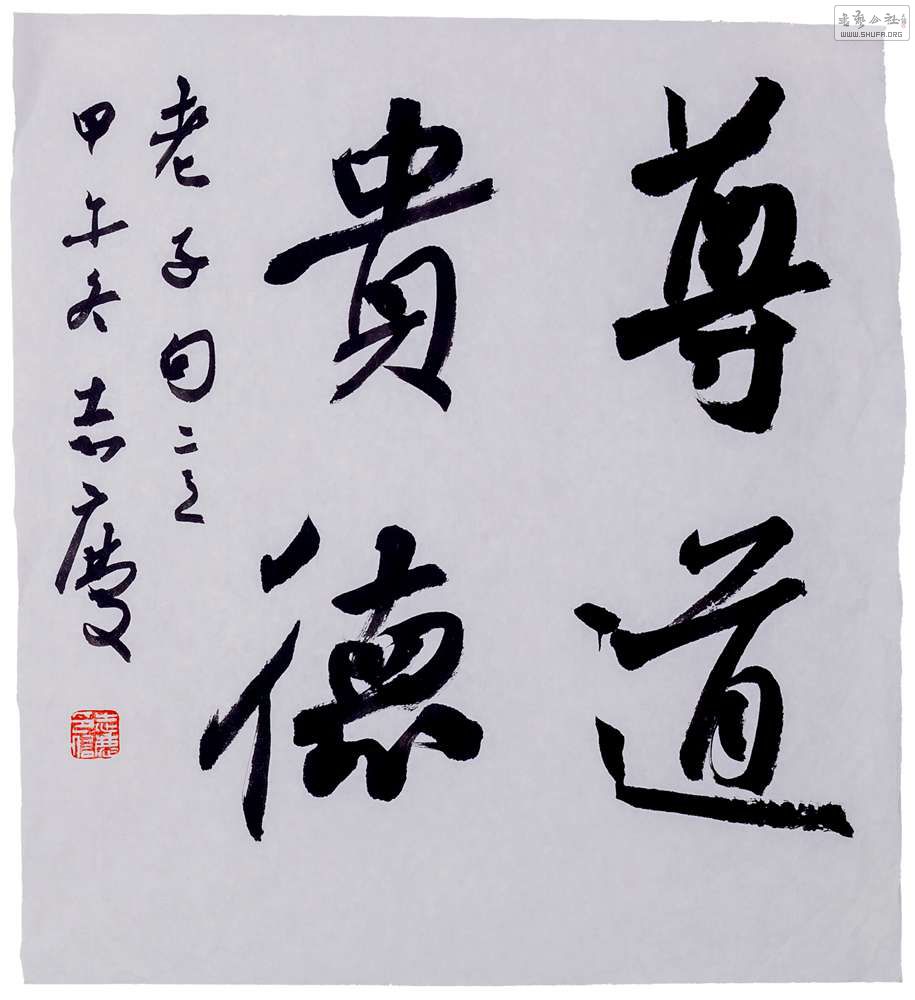 尊道
貴德
老子句
甲午冬志慶
書藝公社
WWW.SHUFA.ORG